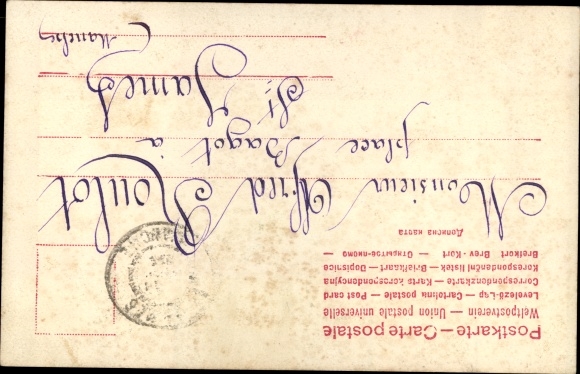 Postkarte — Carte postale
Weltpostverein — Union postale universelle
Levelező-Lap — Cartolina postale — Post card
Correspondenzkarte — Karta korespondencyjna
Korespondenční lístek — Briefkaart — Dopisnica
Brefkort — Brev-Kort — Открытое-писмо —
Дописна карта
Monsieur Alfred Roulot
place Bagot à
St James
(Manche)